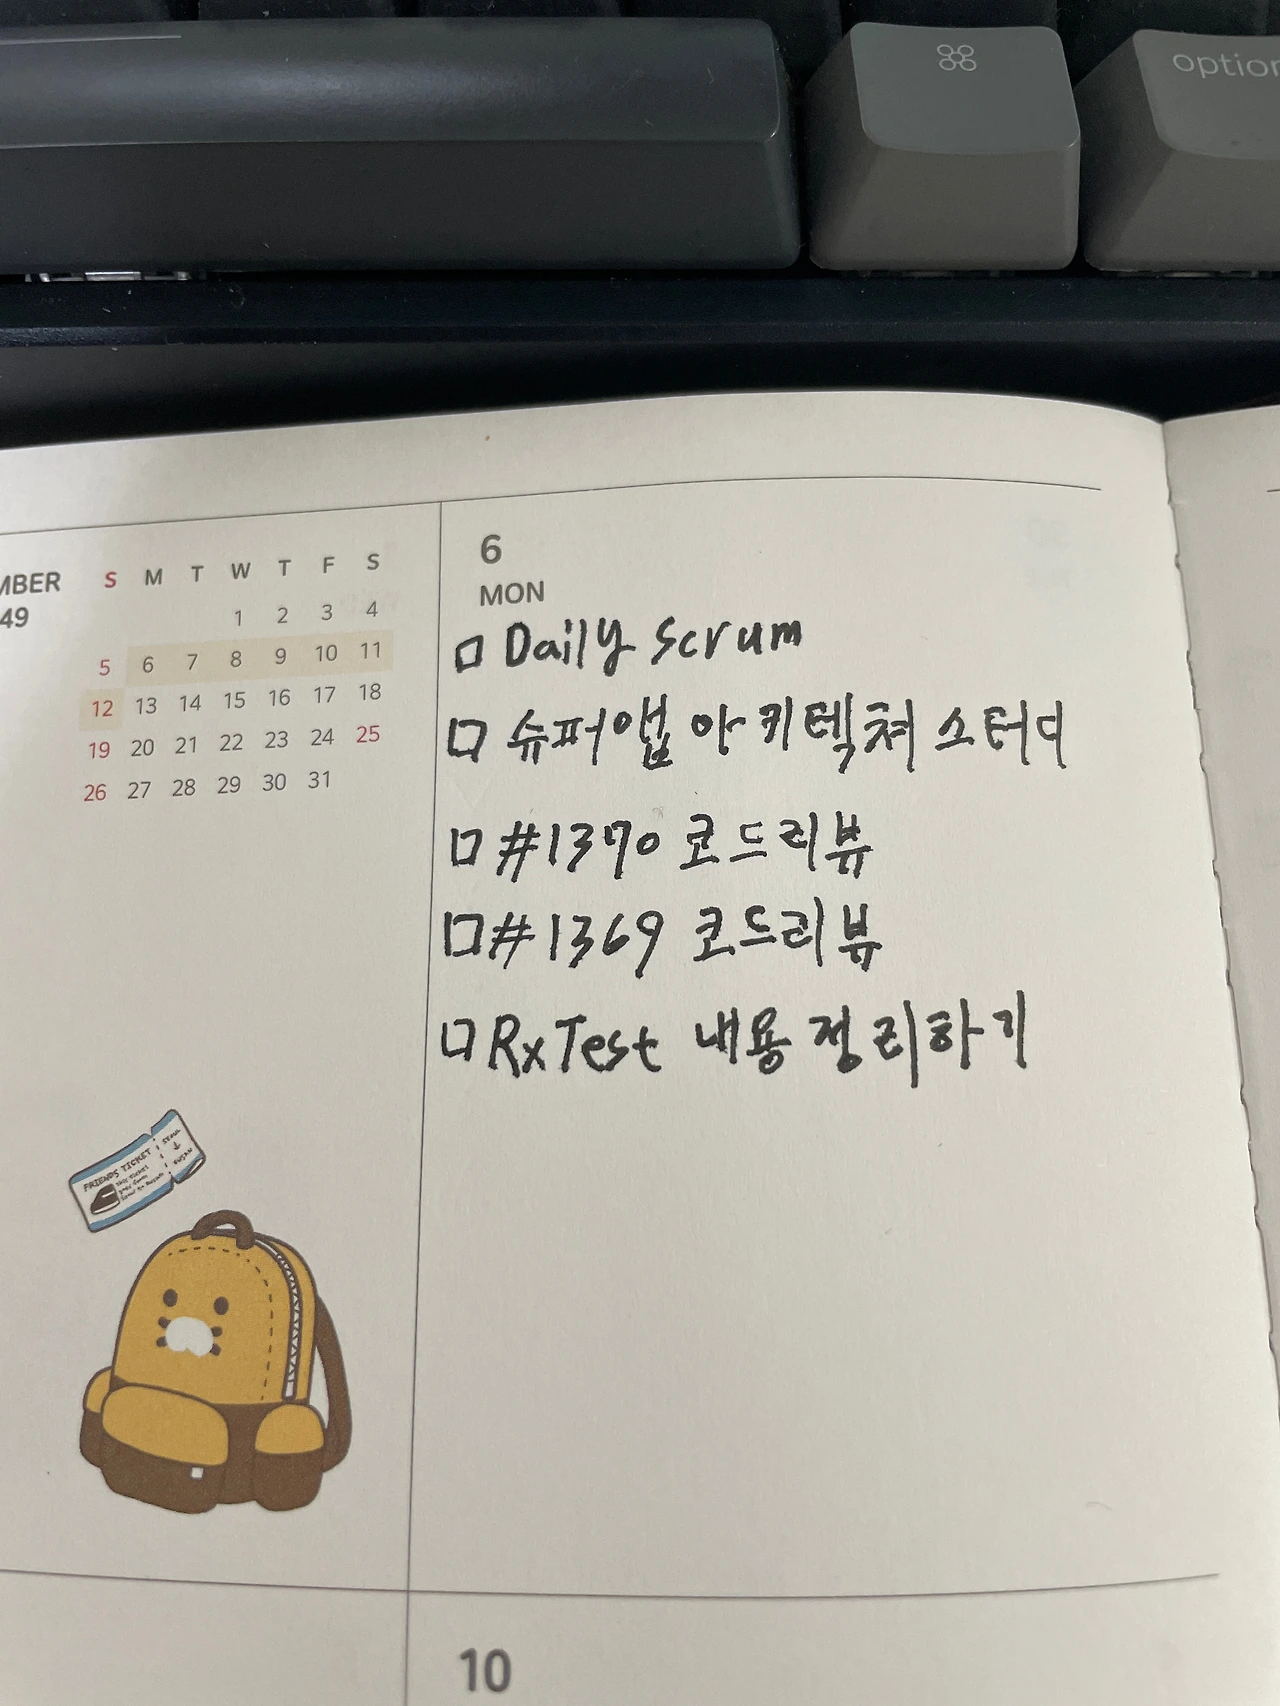 ⌘
option
MBER
49
S M T W T F S
1 2 3 4
5 6 7 8 9 10 11
12 13 14 15 16 17 18
19 20 21 22 23 24 25
26 27 28 29 30 31
6
MON
□ Daily Scrum
□ 슈퍼앱 아키텍쳐 스터디
□ #1370 코드리뷰
□ #1369 코드리뷰
□ RxTest 내용 정리하기
FRIENDS TICKET
SEOUL
BUSAN
10